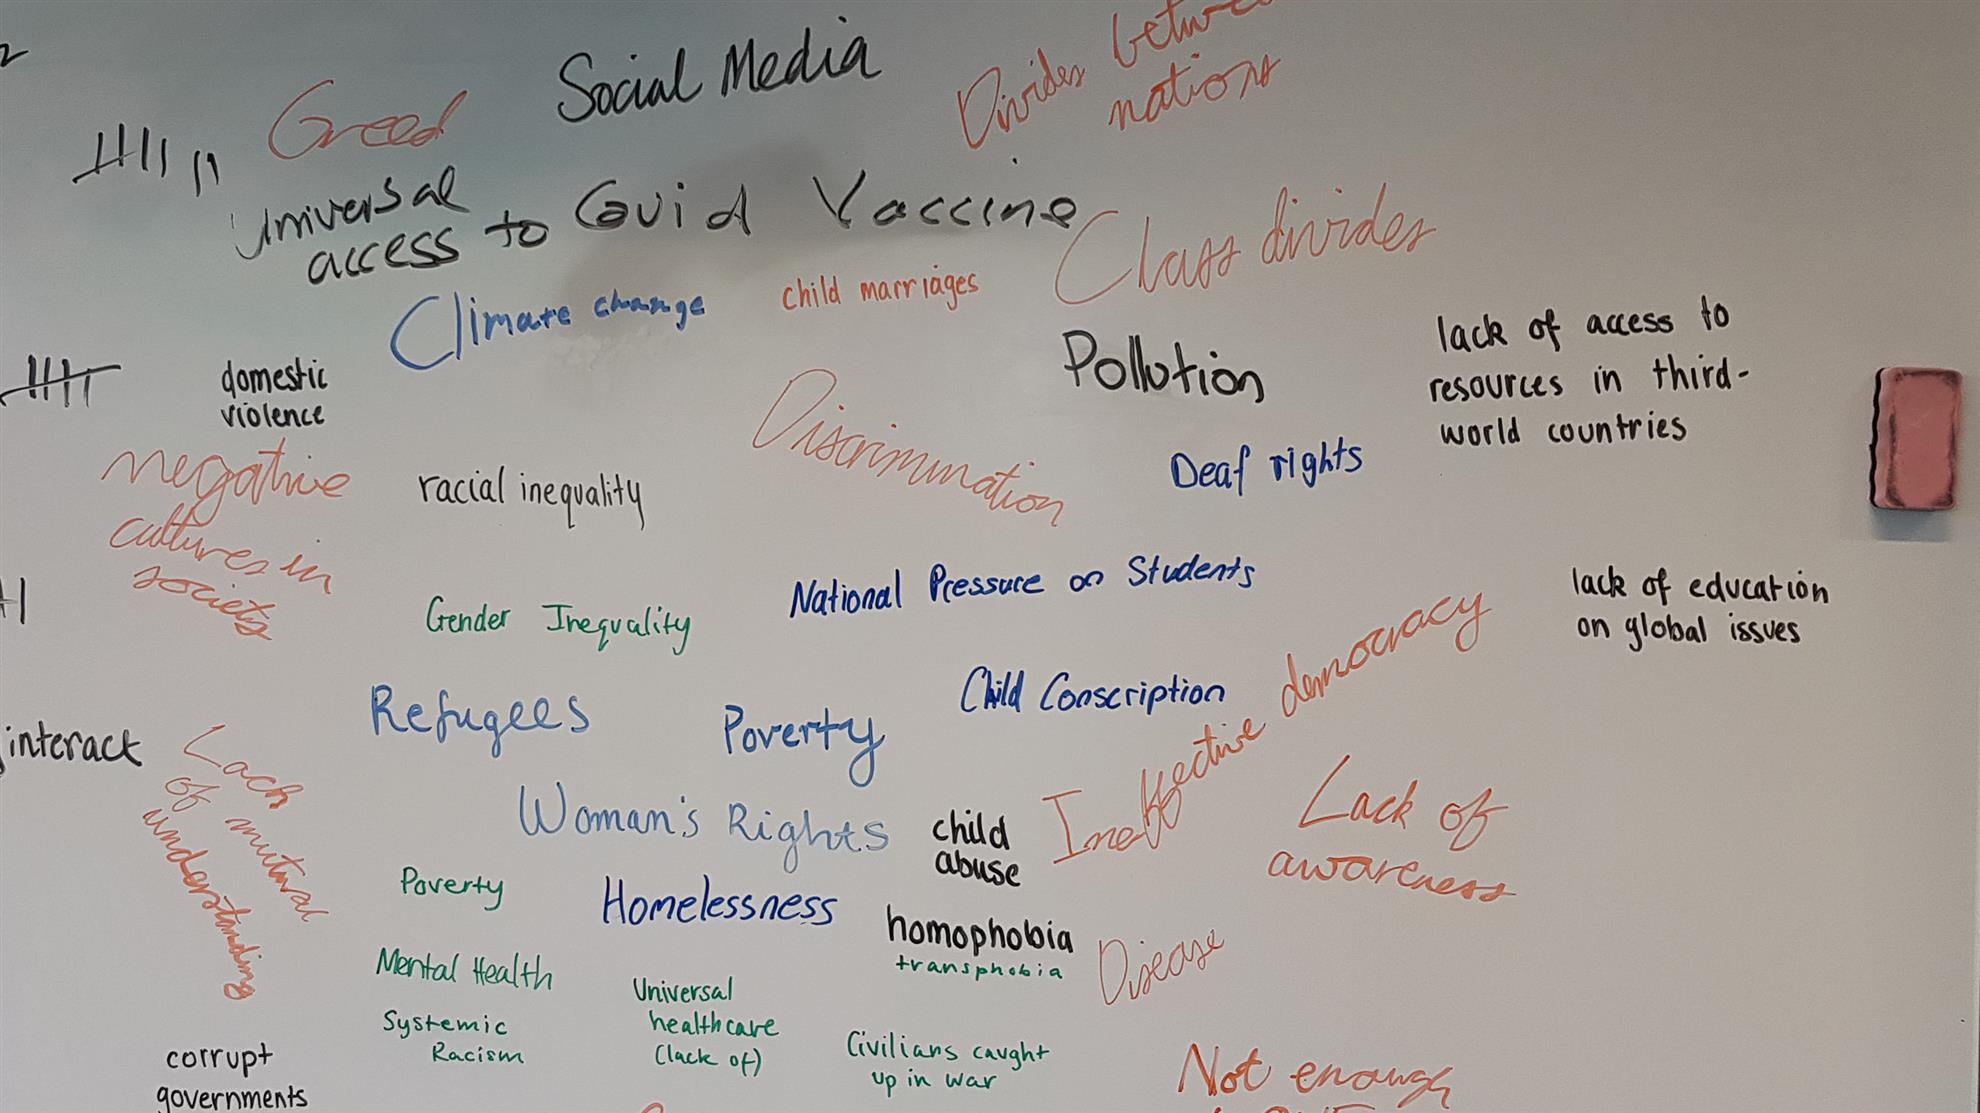 Greed
Social Media
Divides between
nations
Universal
access to Covid Vaccine
Class divides
Climate change
child marriages
Pollution
lack of access to
resources in third-
world countries
domestic
violence
Discrimination
Deaf rights
negative
cultures in
society
racial inequality
National Pressure on Students
lack of education
on global issues
Gender Inequality
Child Conscription
Ineffective democracy
Refugees
Poverty
interact
Lack
of mutural
understanding
Woman's Rights
child
abuse
Lack of
awareness
Poverty
Homelessness
homophobia
transphobia
Disease
Mental Health
Universal
healthcare
(lack of)
Systemic
Racism
Civilians caught
up in war
corrupt
governments
Not enough